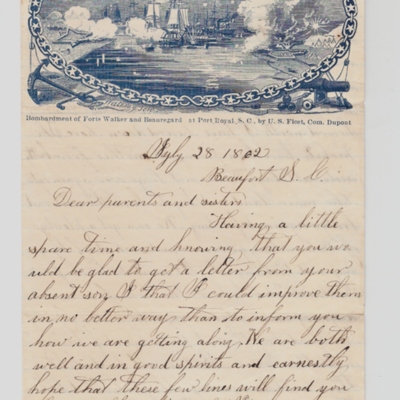 Bombardment of Forts Walker and Beauregard at Port Royal, S. C., by U. S. Fleet, Com. Dupont
July 28 1862
Beaufort S. C.
Dear parents and sisters
Having a little
spare time and knowing that you wo
uld be glad to get a letter from your
absent son I that I could improve them
in no better way than to inform you
how we are getting along. We are both
well and in good spirits and earnestly
hope that these few lines will find you